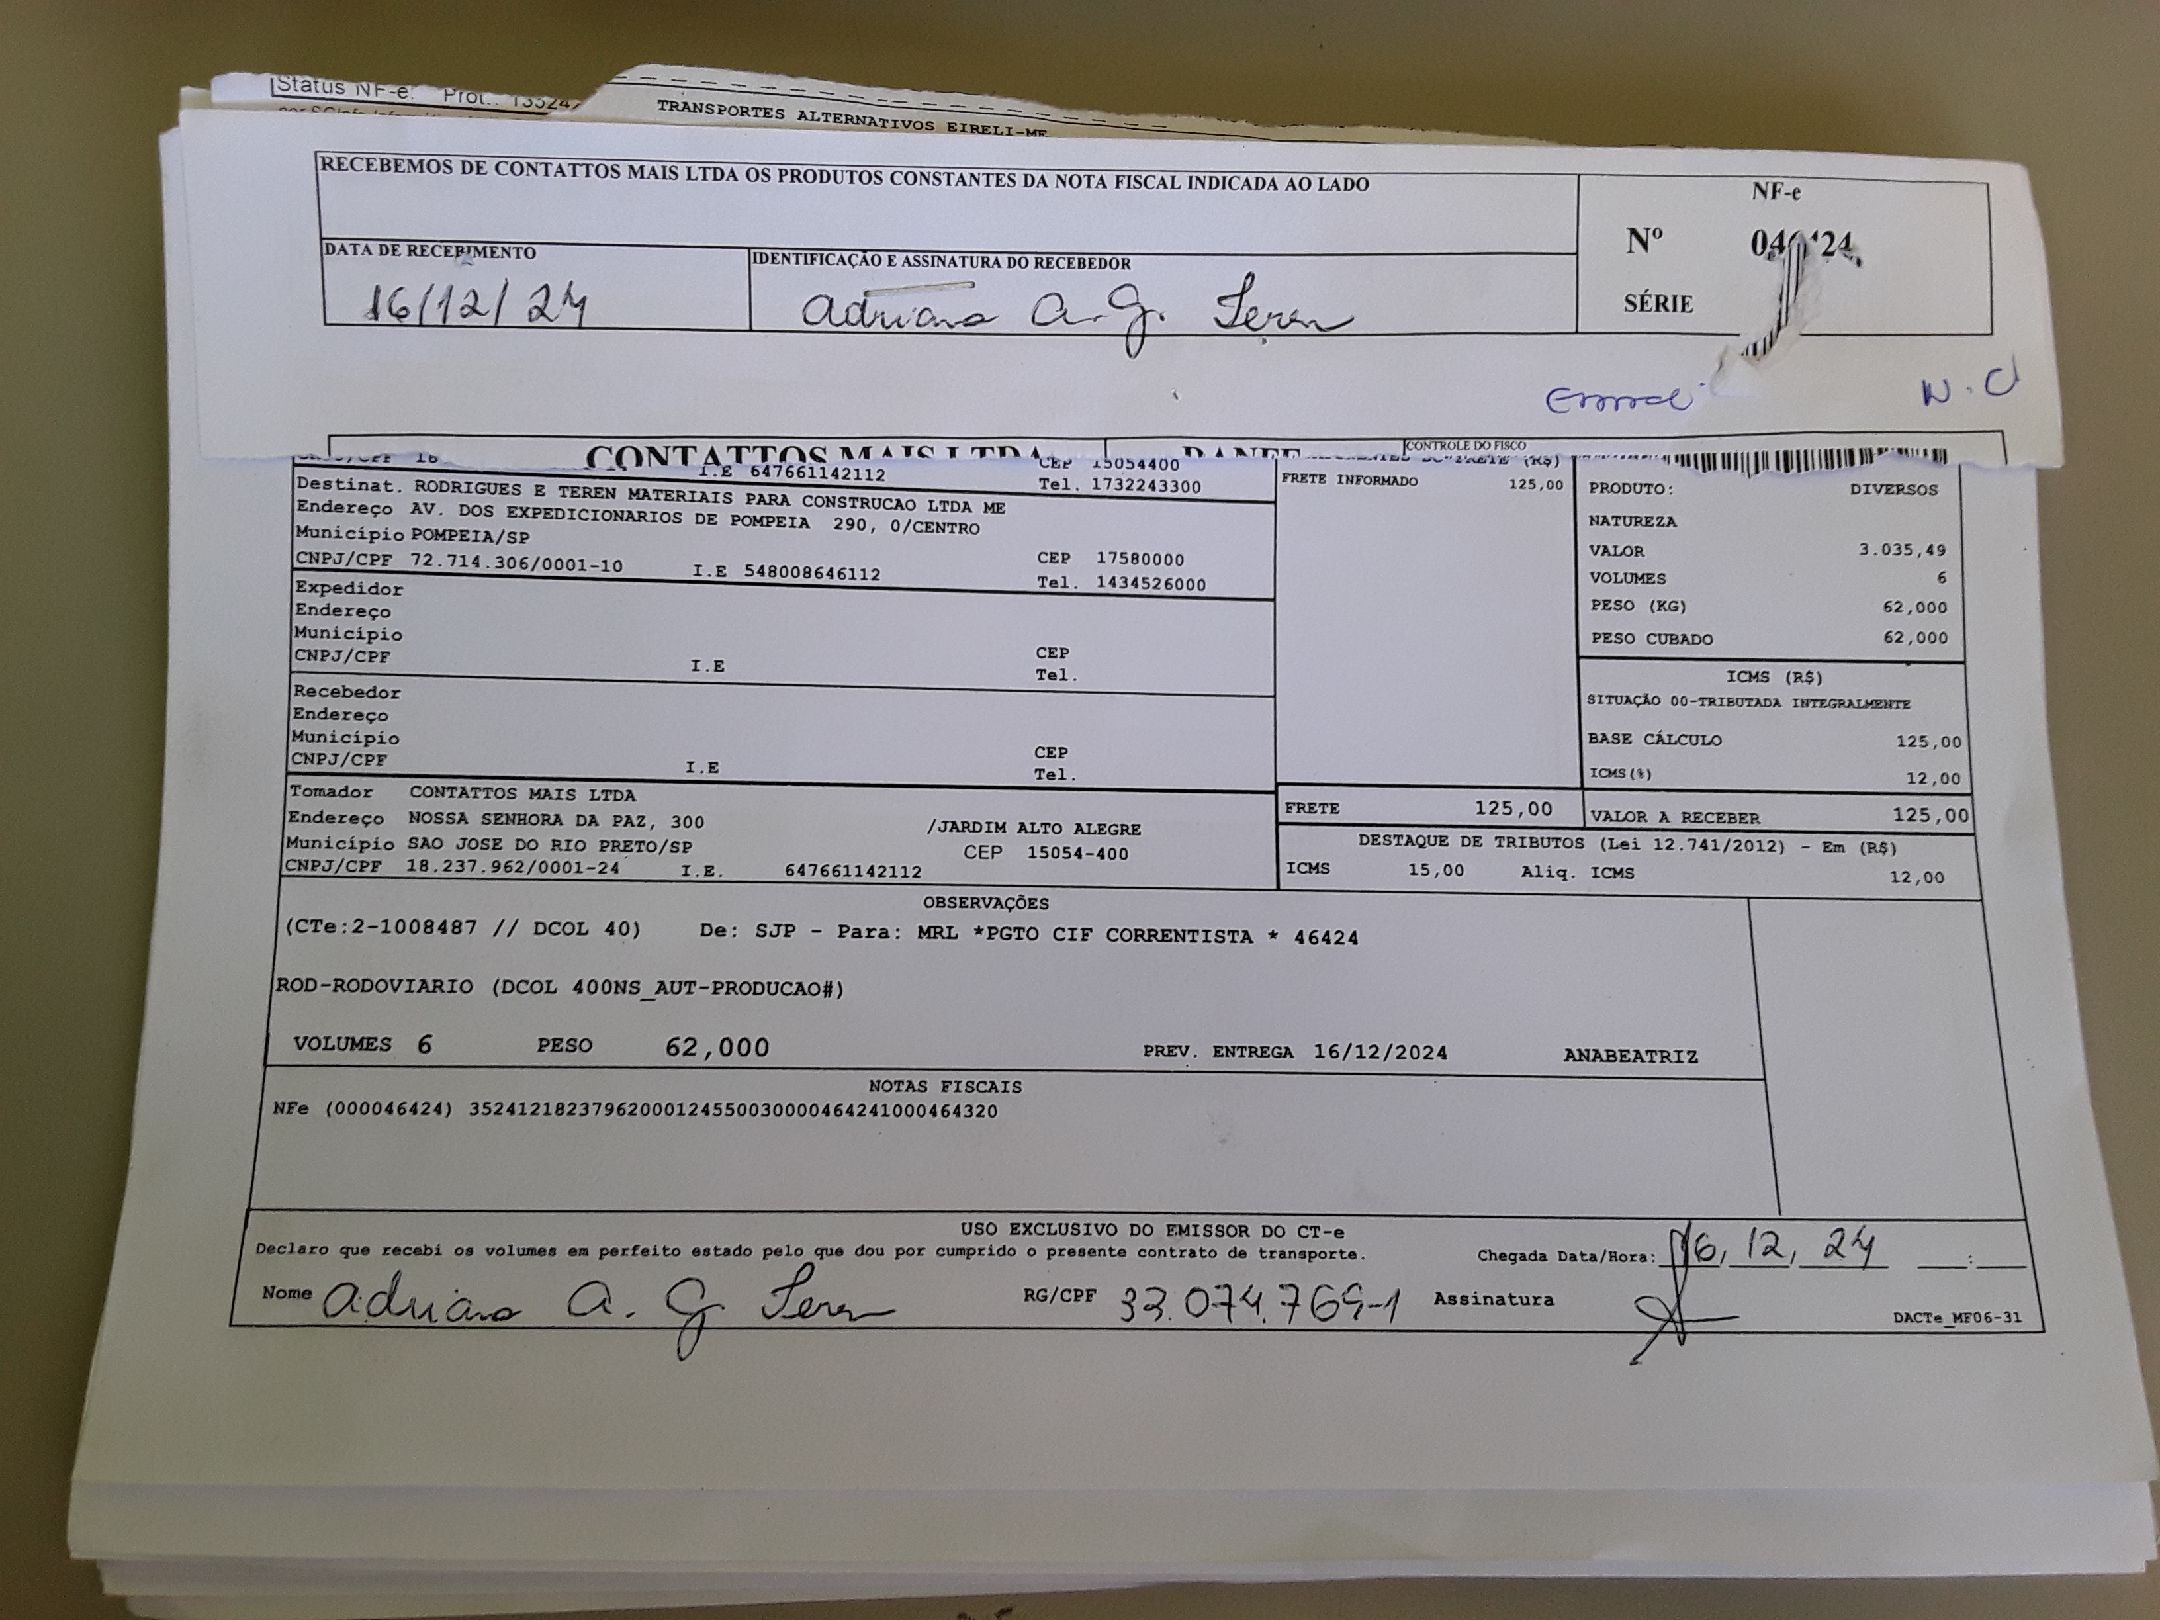 Status NF-e: Prot.:
TRANSPORTES ALTERNATIVOS EIRELI-ME
RECEBEMOS DE CONTATTOS MAIS LTDA OS PRODUTOS CONSTANTES DA NOTA FISCAL INDICADA AO LADO
NF-e
Nº
DATA DE RECEBIMENTO
IDENTIFICAÇÃO E ASSINATURA DO RECEBEDOR
SÉRIE
16/12/24
Adriana A. G. Teren
N.C
CONTATTOS MAIS LTDA DANFE CONTROLE DO FISCO
I.E 647661142112 CEP 15054400
Tel. 1732243300
FRETE INFORMADO 125,00
PRODUTO: DIVERSOS
NATUREZA
VALOR 3.035,49
VOLUMES 6
PESO (KG) 62,000
PESO CUBADO 62,000
Destinat. RODRIGUES E TEREN MATERIAIS PARA CONSTRUCAO LTDA ME
Endereço AV. DOS EXPEDICIONARIOS DE POMPEIA 290, 0/CENTRO
Município POMPEIA/SP CEP 17580000
CNPJ/CPF 72.714.306/0001-10 I.E 548008646112 Tel. 1434526000
Expedidor
Endereço
Município CEP
CNPJ/CPF I.E Tel.
Recebedor
Endereço
Município CEP
CNPJ/CPF I.E Tel.
ICMS (R$)
SITUAÇÃO 00-TRIBUTADA INTEGRALMENTE
BASE CÁLCULO 125,00
ICMS(%) 12,00
Tomador CONTATTOS MAIS LTDA
Endereço NOSSA SENHORA DA PAZ, 300 /JARDIM ALTO ALEGRE
Município SAO JOSE DO RIO PRETO/SP CEP 15054-400
CNPJ/CPF 18.237.962/0001-24 I.E. 647661142112
FRETE 125,00 VALOR A RECEBER 125,00
DESTAQUE DE TRIBUTOS (Lei 12.741/2012) - Em (R$)
ICMS 15,00 Aliq. ICMS 12,00
OBSERVAÇÕES
(CTe:2-1008487 // DCOL 40) De: SJP - Para: MRL *PGTO CIF CORRENTISTA * 46424
ROD-RODOVIARIO (DCOL 400NS_AUT-PRODUCAO#)
VOLUMES 6 PESO 62,000 PREV. ENTREGA 16/12/2024 ANABEATRIZ
NOTAS FISCAIS
NFe (000046424) 35241218237962000124550030000464241000464320
USO EXCLUSIVO DO EMISSOR DO CT-e
Declaro que recebi os volumes em perfeito estado pelo que dou por cumprido o presente contrato de transporte. Chegada Data/Hora: 16, 12, 24 :
Nome Adriana A. G. Teren RG/CPF 33.074.769-1 Assinatura
DACTe_MF06-31